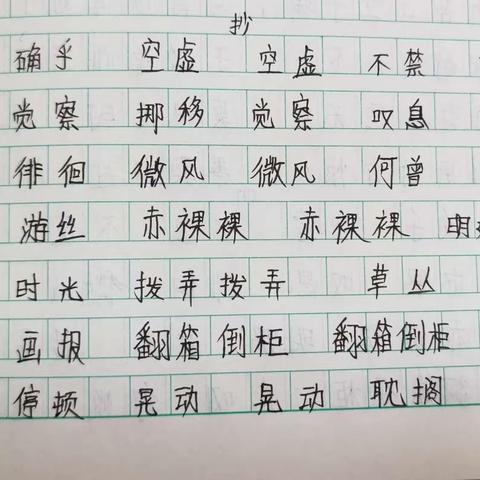 抄
确乎 空虚 空虚 不禁
觉察 挪移 觉察 叹息
徘徊 微风 微风 何曾
游丝 赤裸裸 赤裸裸 明
时光 拨弄 拨弄 草丛
画报 翻箱倒柜 翻箱倒柜
停顿 晃动 晃动 耽搁